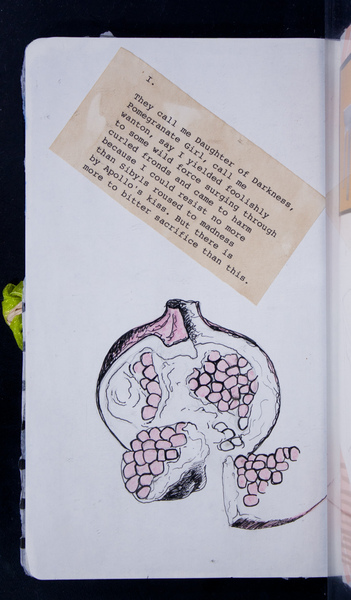 I.
They call me Daughter of Darkness,
Pomegranate Girl, call me
wanton, say I yielded foolishly
to some wild force surging through
curled fronds and came to harm
because I could resist no more
than Sibyls roused to madness
by Apollo's kiss. But there is
more to bitter sacrifice than this.